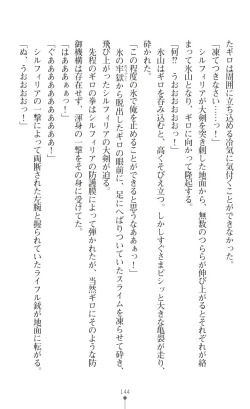 たギロは周囲に立ち込める冷気に気付くことができない。
「凍てつきなさい……っ！」
シルフィリアが大剣を刺した地面から、無数のつららが伸び上がるとそれぞれが絡
まって氷山となり、ギロに向かって隆起する。
「何⁉　うおおおおっ！」
氷山はギロを呑み込むと、高くそびえ立つ。しかしすぐさまビシッと大きな亀裂が走り、
砕かれた。
「この程度の氷で俺を止めることができると思うなああぁっ！」
氷の牢獄から脱出したギロの眼前に、足にへばりついていたスライムを凍らせて砕き、
飛び上がったシルフィリアの大剣が迫る。
先程のギロの拳はシルフィリアの防護膜によって弾かれたが、当然ギロにそのような防
御機構は存在せず、渾身の一撃をその身に受けてた。
「はああぁぁっ！」
「ぐああああああぁ！」
シルフィリアの一撃によって両断された左腕と握られていたライフル銃が地面に転がる。
「ぬ、うおおおおっ！」
144